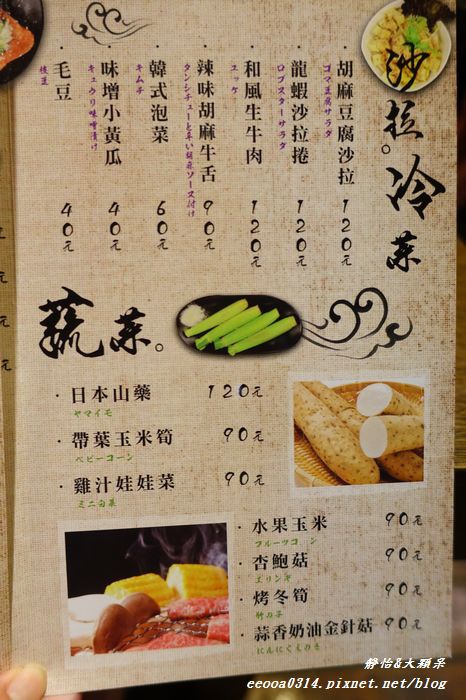 沙拉。冷菜
胡麻豆腐沙拉 120元
ゴマ豆腐サラダ
龍蝦沙拉捲 120元
ロブスターサラダ
和風生牛肉 120元
ユッケ
辣味胡麻牛舌 90元
タンシチューと辛い胡麻ソース付け
韓式泡菜 60元
キムチ
味增小黃瓜 40元
キュウリ味噌漬け
毛豆 40元
枝豆
蔬菜。
日本山藥 120元
ヤマイモ
帶葉玉米筍 90元
ベビーコーン
雞汁娃娃菜 90元
ミニ白菜
水果玉米 90元
フルーツコーン
杏鮑菇 90元
エリンギ
烤冬筍 90元
竹の子
蒜香奶油金針菇 90元
にんにくえのき
靜怡&大顆呆
eeooa0314.pixnet.net/blog